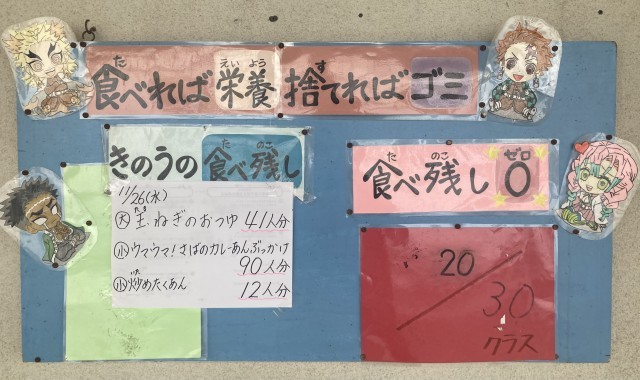 食べれば栄養捨てればゴミ
きのうの食べ残し
11/26(水)
大 玉ねぎのおつゆ 41人分
小 ウマウマ!さばのカレーあんぶっかけ
90人分
小 炒めたくあん 12人分
食べ残し0
20/30
クラス